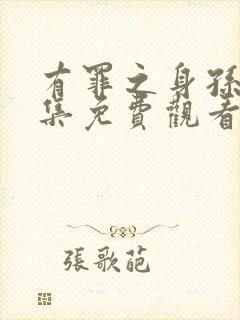 有罪之身孫
集免費觀看
張歌葩